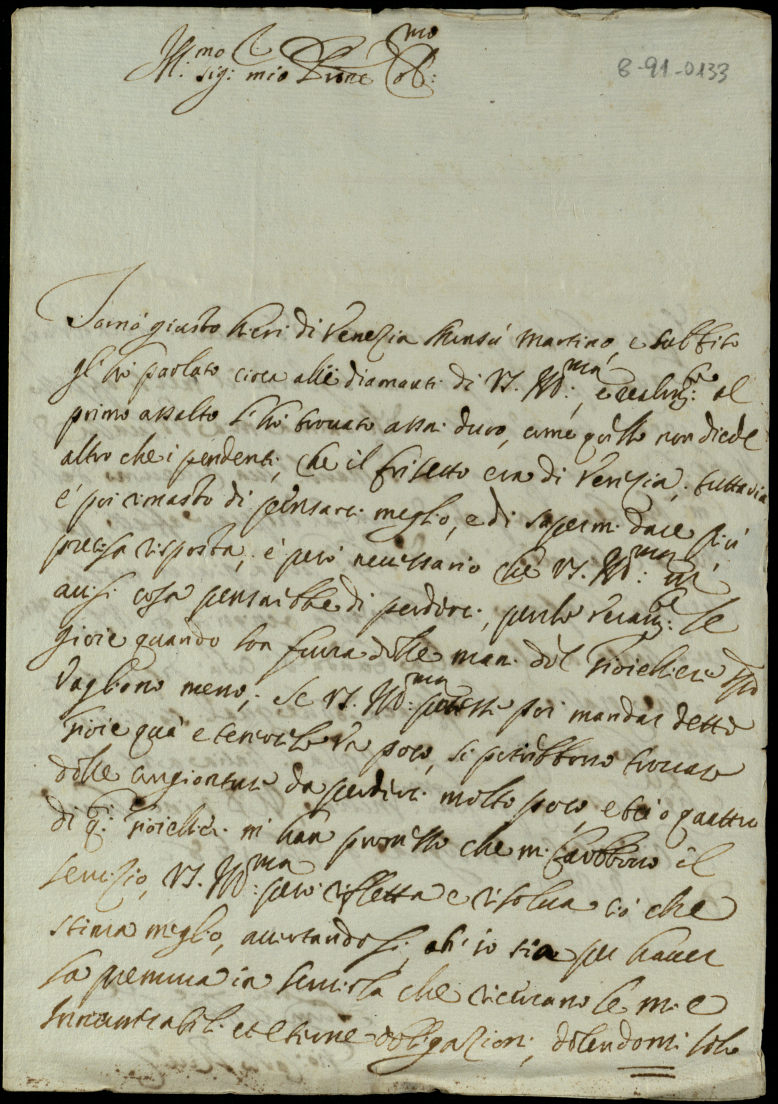 Ill:mo Sig: mio Prone Col:mo
8-91-0133
Tornò giusto hieri di Venezia Munsù Martino, e subbito
gl'hò parlato circa alli diamanti di V.S. Ill:ma, e realm:te al
primo assalto l'hò trovato assai duro, come quello non diede
altro che i pendenti, che il frisetto era di Venezia, tuttavia
è poi rimasto di pensarci meglio, e di sapermi dare più
precisa risposta, è però necessario che V.S. Ill:ma mi
avisi cosa pensarebbe di perderci, perche veram:te le
gioie quando son fuora delle mani del Gioielliere
vagliono meno, se V.S. Ill:ma potesse poi mandar dette
Gioie quà e tenercele un poco, si potrebbono trovare
delle congionture da perderci molto poco, e tre o quattro
di q:ti Gioiellieri mi han promesso che mi farebbono il
servizio, V.S. Ill:ma però rifletta e risolva ciò che
stima meglio, accertandosi, ch'io sia per haver
la premura in servirla che ricercano le mie
innumerabili et eterne obligazioni, dolendomi solo